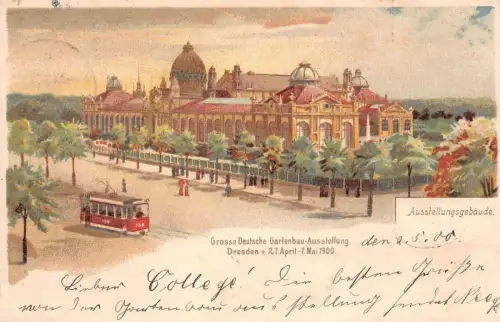 Ausstellungsgebäude.
Grosse Deutsche Gartenbau-Ausstellung.
Dresden v. 27. April - 7. Mai 1900.
den 2.5.00.
Lieber College! Die besten Grüße
von der Gartenbauausstellung sendet